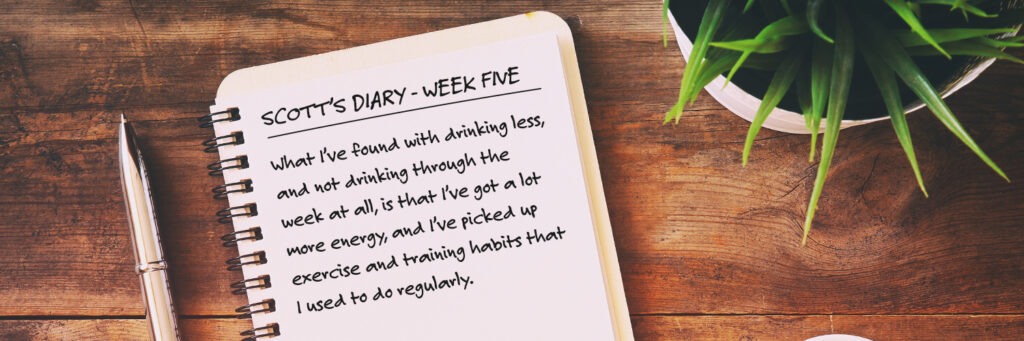 SCOTT'S DIARY - WEEK FIVE
What I've found with drinking less,
and not drinking through the
week at all, is that I've got a lot
more energy, and I've picked up
exercise and training habits that
I used to do regularly.